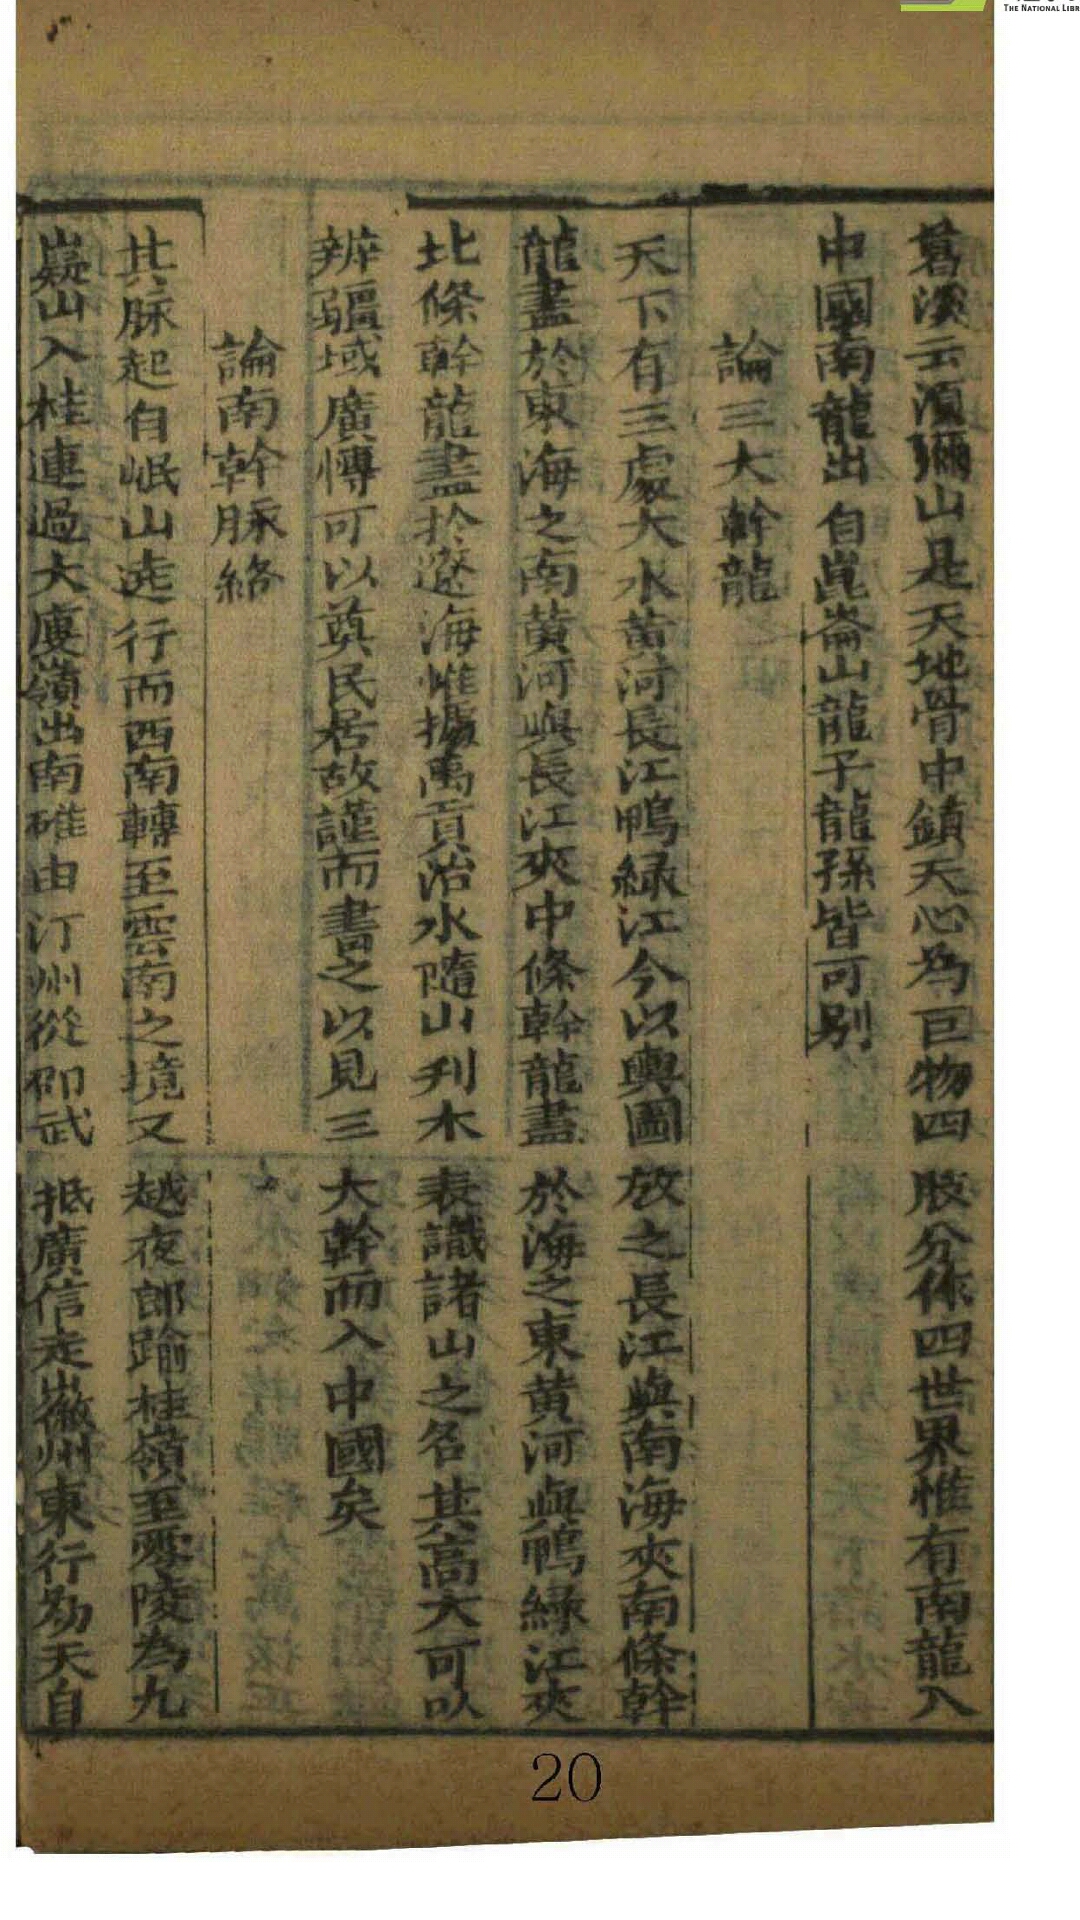 葛溪云湏彌山是天地骨中鎮天心為巨物四肢分作四世界惟有南龍入
中國南龍出自崑崙山龍子龍孫皆可别
論三大幹龍
天下有三處大水黄河長江鴨緑江今以輿圖放之長江與南海夾南條幹
龍盡於東海之南黄河與長江夾中條幹龍盡於海之東黄河與鴨緑江夾
北條幹龍盡於遼海惟據禹貢治水隨山刋木表識諸山之名其高大可以
辨疆域廣慱可以奠民居故謹而書之以見三大幹而入中國矣
論南幹脉絡
其脉起自岷山迤行而西南轉至雲南之境又越夜郎踰桂嶺至零陵為九
嶷山入桂連過大庾嶺出南雄由汀州從邵武抵廣信走徽州東行為天自
20
THE NATIONAL LIBR